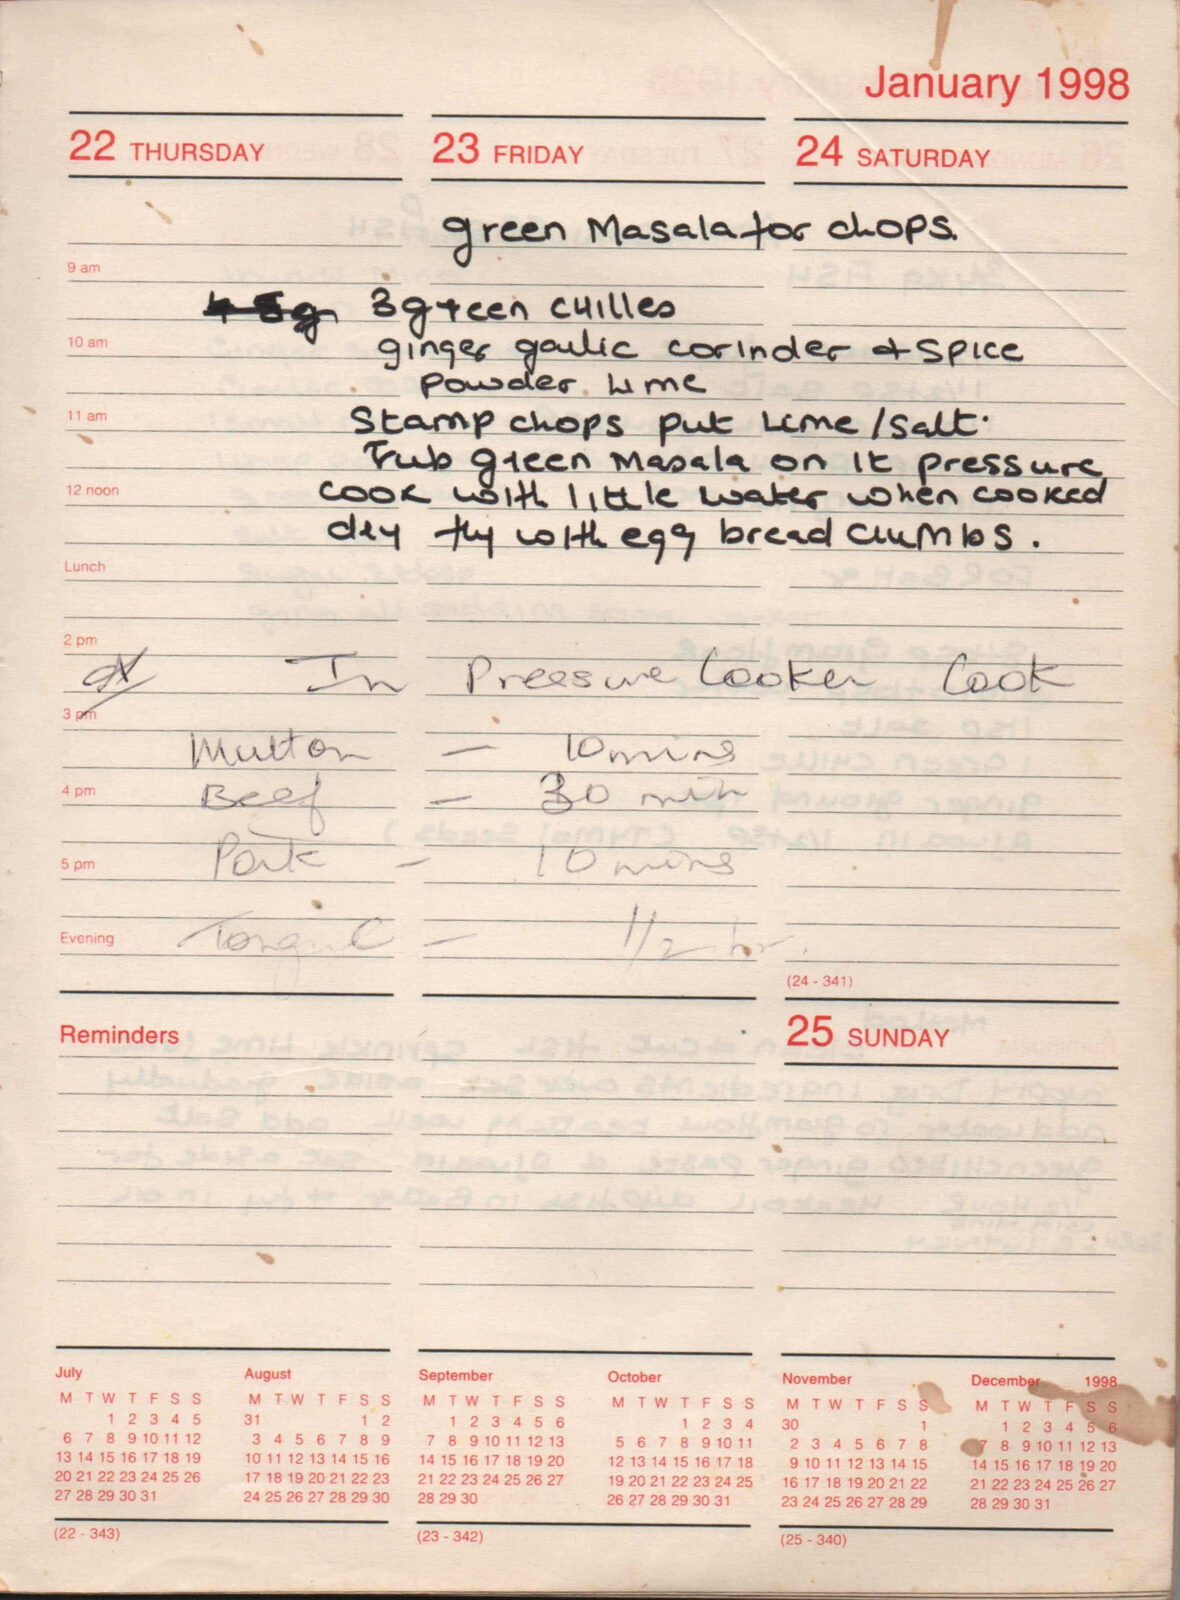 January 1998
22 THURSDAY
23 FRIDAY
24 SATURDAY
green Masala for chops.
9 am
3 green chilles
10 am
ginger garlic corinder & spice
powder. Lime
11 am
Stamp chops put Lime / salt.
rub green Masala on it pressure
12 noon
cook with little water when cooked
dry fry with egg bread crumbs.
Lunch
2 pm
In Pressure Cooker Cook
3 pm
Mutton — 10 mins
4 pm
Beef — 30 min
5 pm
Pork — 10 mins
Evening
Tongue — 1/2 hr.
(24 - 341)
Reminders
25 SUNDAY
July
M T W T F S S
1 2 3 4 5
6 7 8 9 10 11 12
13 14 15 16 17 18 19
20 21 22 23 24 25 26
27 28 29 30 31
August
M T W T F S S
31 1 2
3 4 5 6 7 8 9
10 11 12 13 14 15 16
17 18 19 20 21 22 23
24 25 26 27 28 29 30
September
M T W T F S S
1 2 3 4 5 6
7 8 9 10 11 12 13
14 15 16 17 18 19 20
21 22 23 24 25 26 27
28 29 30
October
M T W T F S S
1 2 3 4
5 6 7 8 9 10 11
12 13 14 15 16 17 18
19 20 21 22 23 24 25
26 27 28 29 30 31
November
M T W T F S S
30 1
2 3 4 5 6 7 8
9 10 11 12 13 14 15
16 17 18 19 20 21 22
23 24 25 26 27 28 29
December 1998
M T W T F S S
1 2 3 4 5 6
7 8 9 10 11 12 13
14 15 16 17 18 19 20
21 22 23 24 25 26 27
28 29 30 31
(22 - 343)
(23 - 342)
(25 - 340)